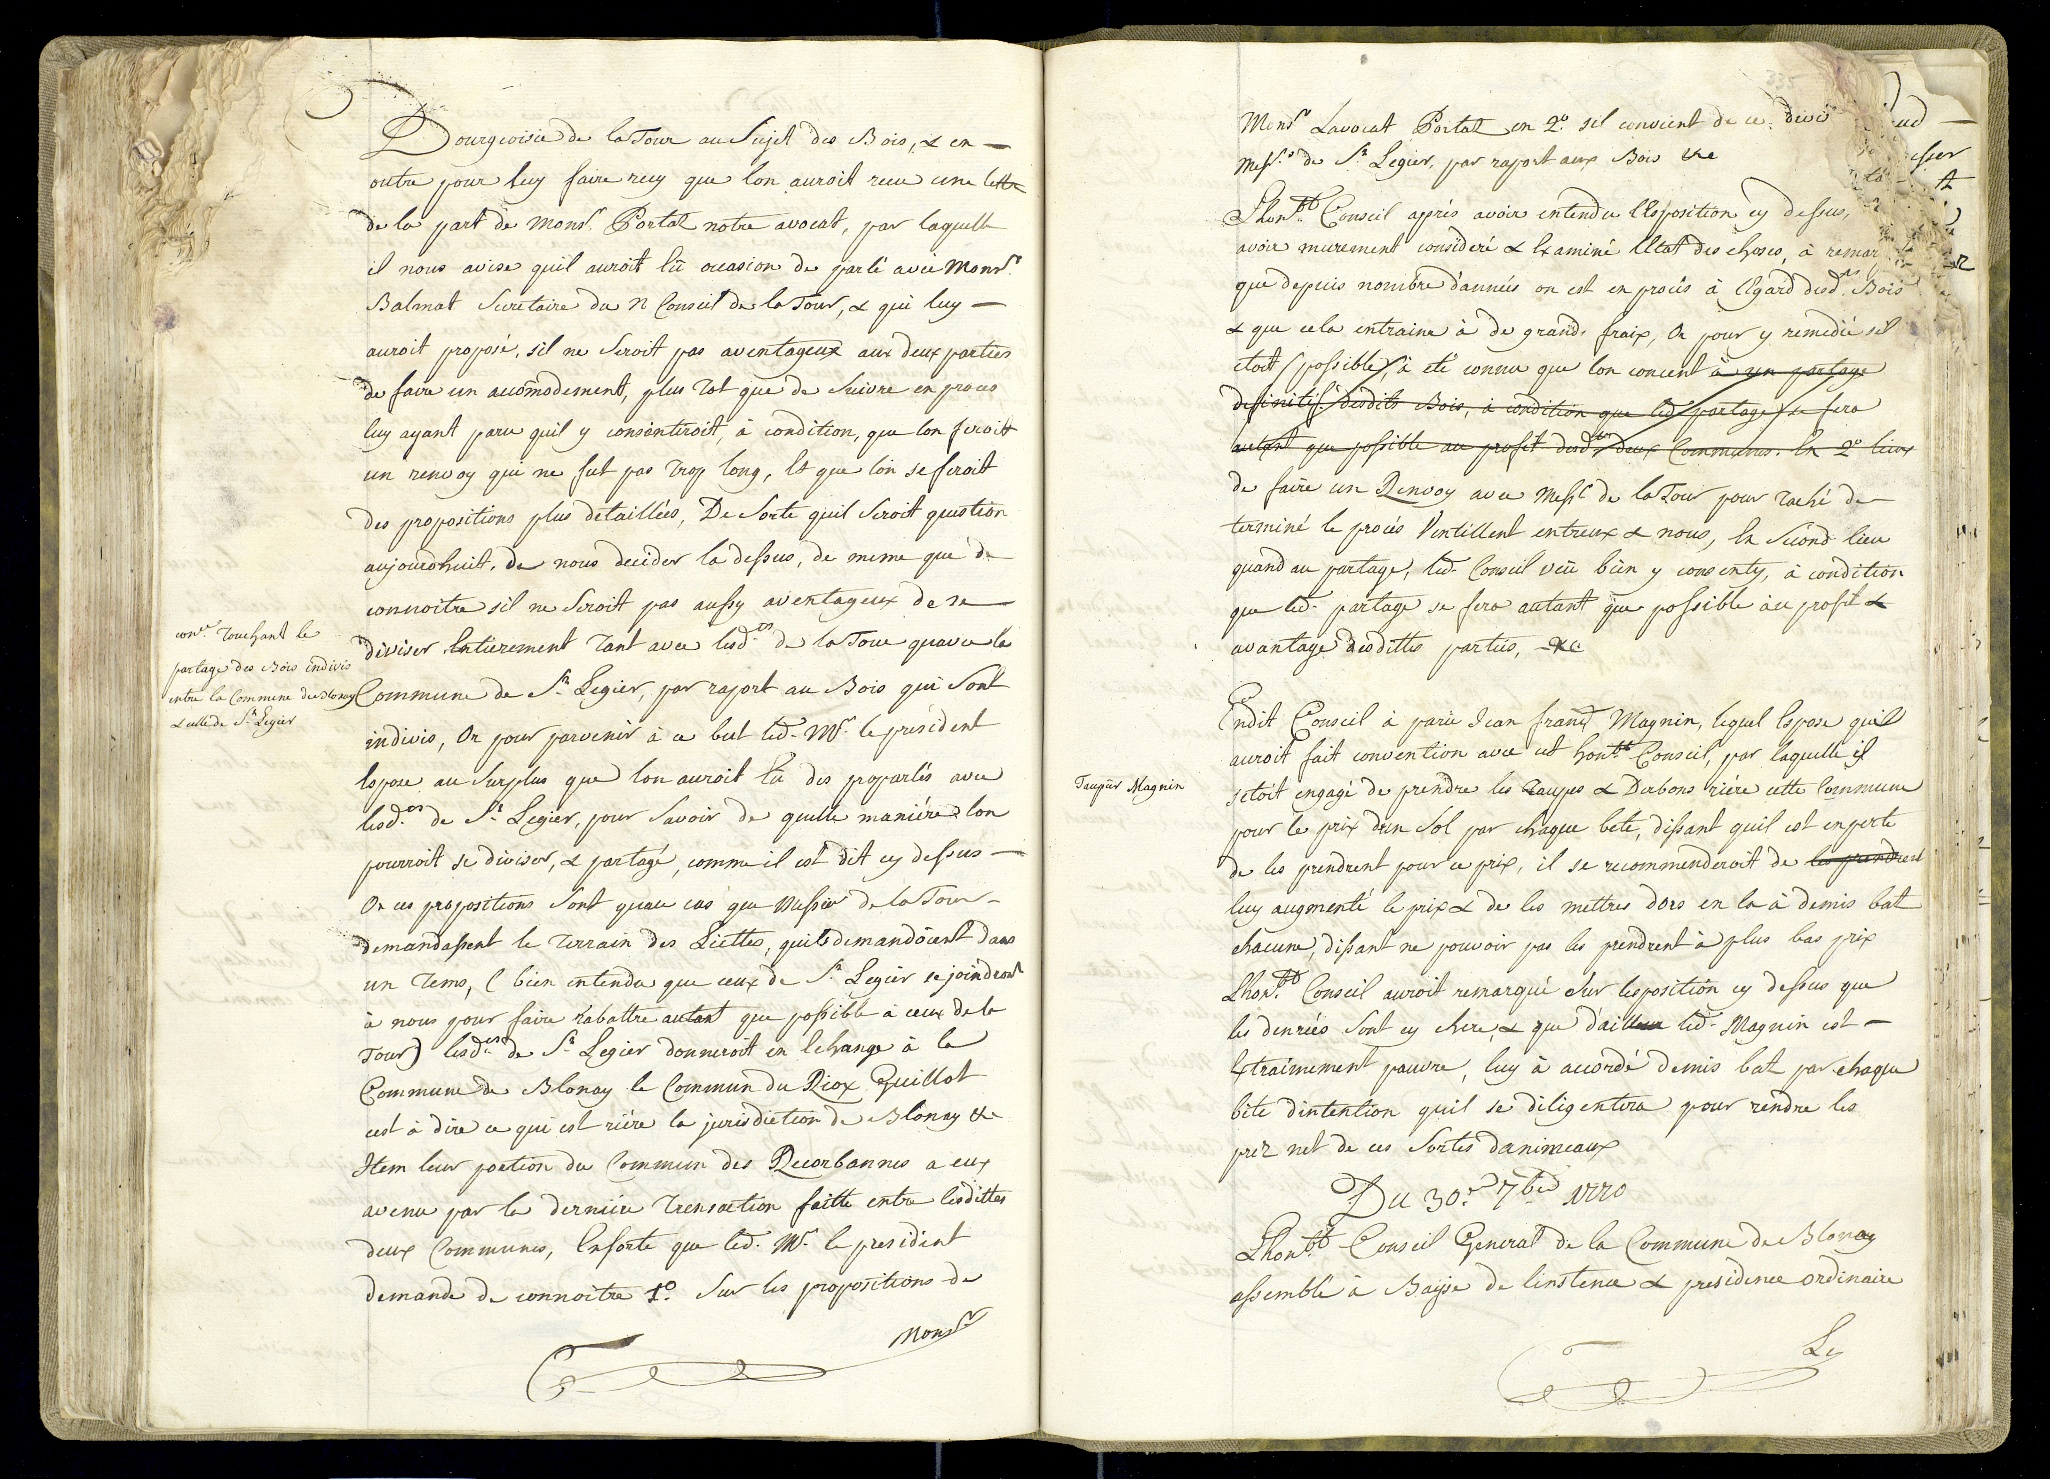 Bourgeoisie de la Tour au Sujet des Bois, & en —
outre pour luy faire recy que lon auroit recu une lettre
de la part de Monsr. Portat notre avocat, par laquelle
il nous avise quil auroit lû occasion de parlé avec Monsr.
Balmat Secretaire du N Conseil de la Tour, & qui luy —
auroit proposé, sil ne Seroit pas aventageux aux deux parties
de faire un accomodement, plus tot que de Suivre en proces
luy ayant paru quil y consentiroit, à condition, que lon feroit
un renvoy qui ne fut pas trop long, Et que lon se feroit
des propositions plus detaillées, De Sorte quil Seroit question
aujourdhuit, de nous decider la dessus, de meme que de
connoitre sil ne Seroit pas aussy aventageux de se —
diviser Entierement tant avec lesd.es de la Tour quavec la
con.e Touchant le
partage des Bois indivis
entre la Commune de Blonay
& celle de St. Legier
Commune de St. Legier, par raport au Bois qui Sont
indivis, Or pour parvenir à ce but led. Mr. le president
Expose au Surplus que lon auroit lû des proparlés avec
lesd.es de St. Legier, pour Savoir de quelle maniére lon
pourroit se diviser, & partagé, comme il est dit cy dessus —
Or ces propositions Sont quau cas que Messier de la Tour —
demandassent le Terrain des Liettes, quils demandoient dans
un Tems, ( bien entendu que ceux de St. Legier se joindront
à nous pour faire rabattre autant que possible à ceux de la
Tour) lesd.es de St. Legier donneroit en Echange à la
Commune de Blonay le Commun du Riox Guillot
cest à dire ce qui est riére la jurisdiction de Blonay &c
Item leur portion du Commun des Recorbannes a eux
avenu par la derniére Transaction faitte entre lesdittes
deux Communes, Ensorte que led. Mr. le president
demande de connoitre 1º. Sur les propositions de
Monsr
Monsr Lavocat Portat en 2º. sil convient de ce divi
Mess.rs de St. Legier, par raport aux Bois &c
Lhon.ble Conseil aprés avoir entendu lExposition cy dessus,
avoir murement consideré & Examiné lEtat des choses, à remar
que depuis nombre d'années on est en procés à lEgard desd.es Bois
& que cela entraine à de grands fraix, Or pour y remedié sil
etoit (possible), à eté connu que lon concent à un partage
definitif desdits Bois, à condition que led. partage se fera
autant que possible au profit desd.es deux Communes. En 2º lieux
de faire un Renvoy avec Mess.rs de la Tour pour taché de —
terminé le procés Ventillent entreux & nous, En Sécond lieu
quand au partage, led. Conseil veu bien y consenty, à condition
que led. partage se fera autant que possible au profit &
avantage desdittes parties, &c
Endit Conseil à paru Jean franç Magnin, lequel Expose quil
auroit fait convention avec cet hon.ble Conseil, par laquelle il
Taupier Magnin
setoit engagé de prendre les Taupes & Derbons riére cette Commune
pour le prix dun Sol par chaque bete, dissant quil est en perte
de les prendrent pour ce prix, il se recommenderoit de les prendrent
luy augmenté le prix & de les mettres dors en la à demis bat
chacune, dissant ne pouvoir pas les prendrent à plus bas prix
Lhon.ble Conseil auroit remarqué Sur lesposition cy dessus que
les denrées Sont cy chere, & que dailleur led. Magnin est —
Extraimement pauvre, luy à accordé demis bat par chaque
bête dintention quil se diligentera pour rendre les
prez net de ces Sortes d'animeaux
Du 30.e 7bre 1770
Lhon.ble Conseil General de la Commune de Blonay
assemblé à Baÿse de linstence & presidence ordinaire